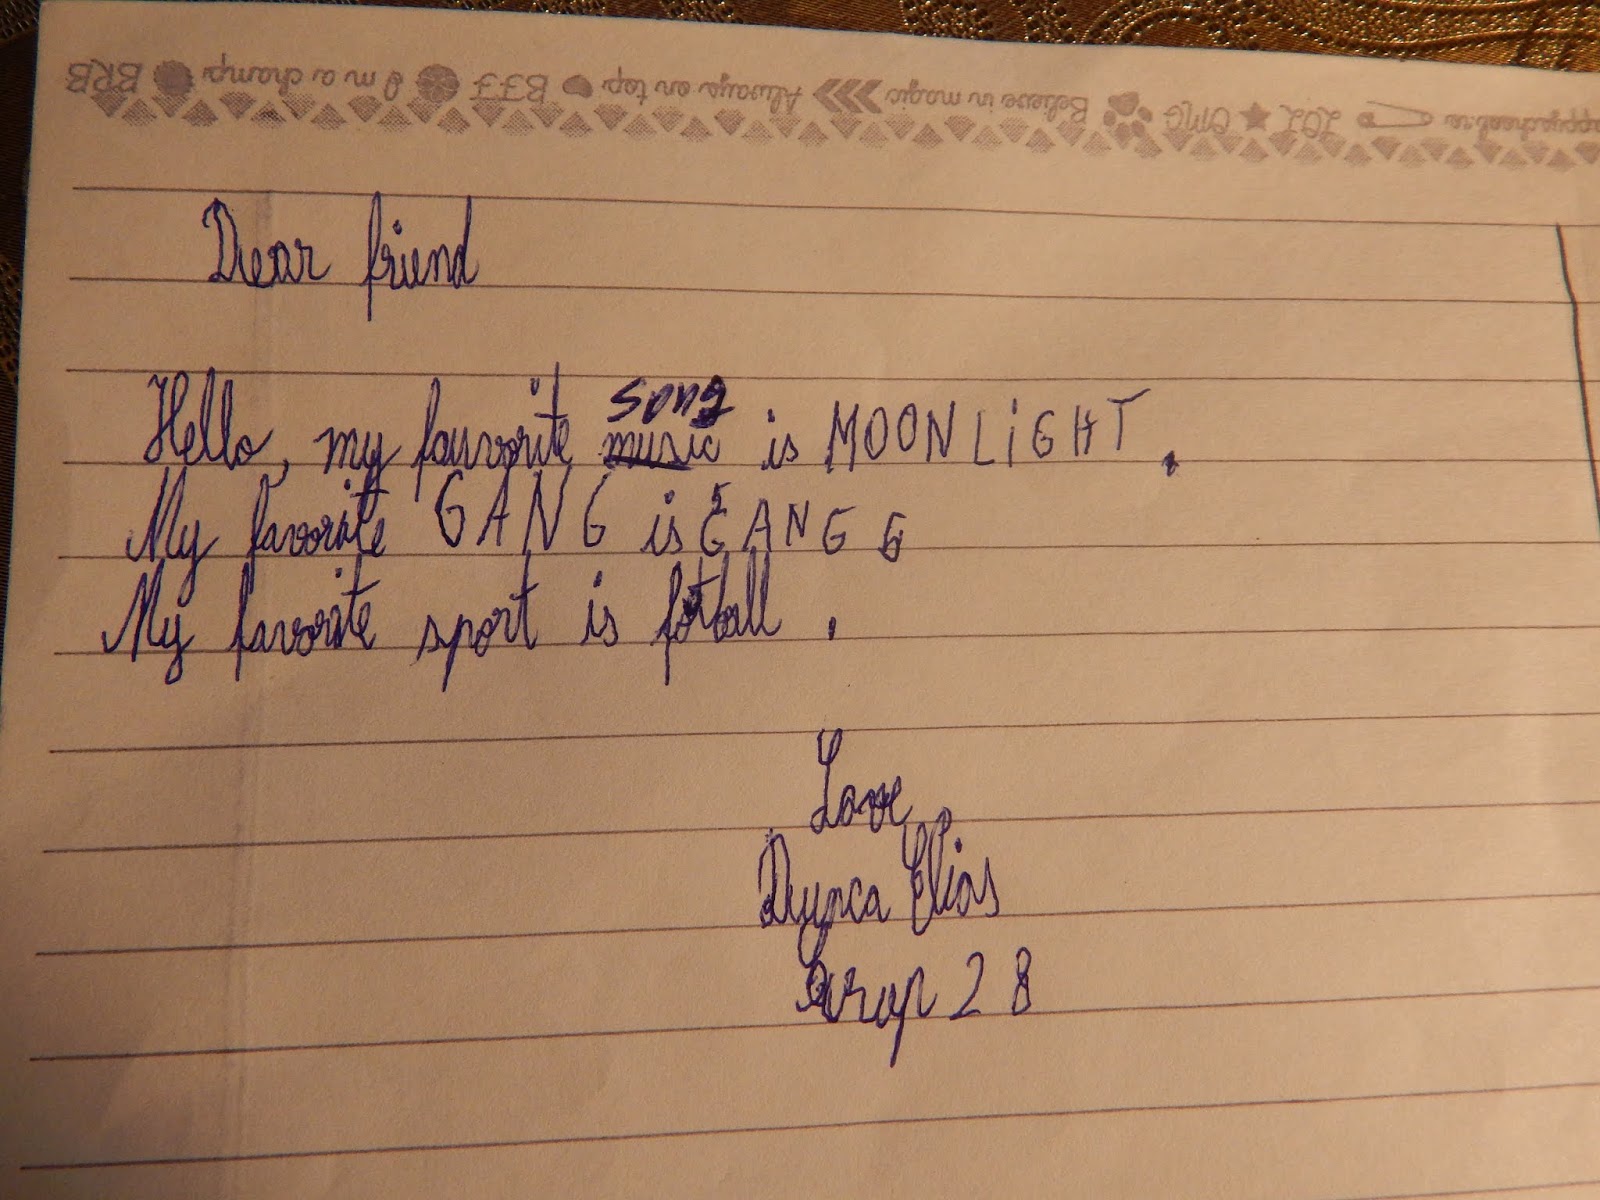 BRB I'm a champ BFF Always on top Believe in magic OMG LOL
Dear friend
Hello, my favorite music song is MOONLIGHT.
My favorite GANG is GANG G
My favorite sport is fotball.
Love
Dynca Elias
Grup 28